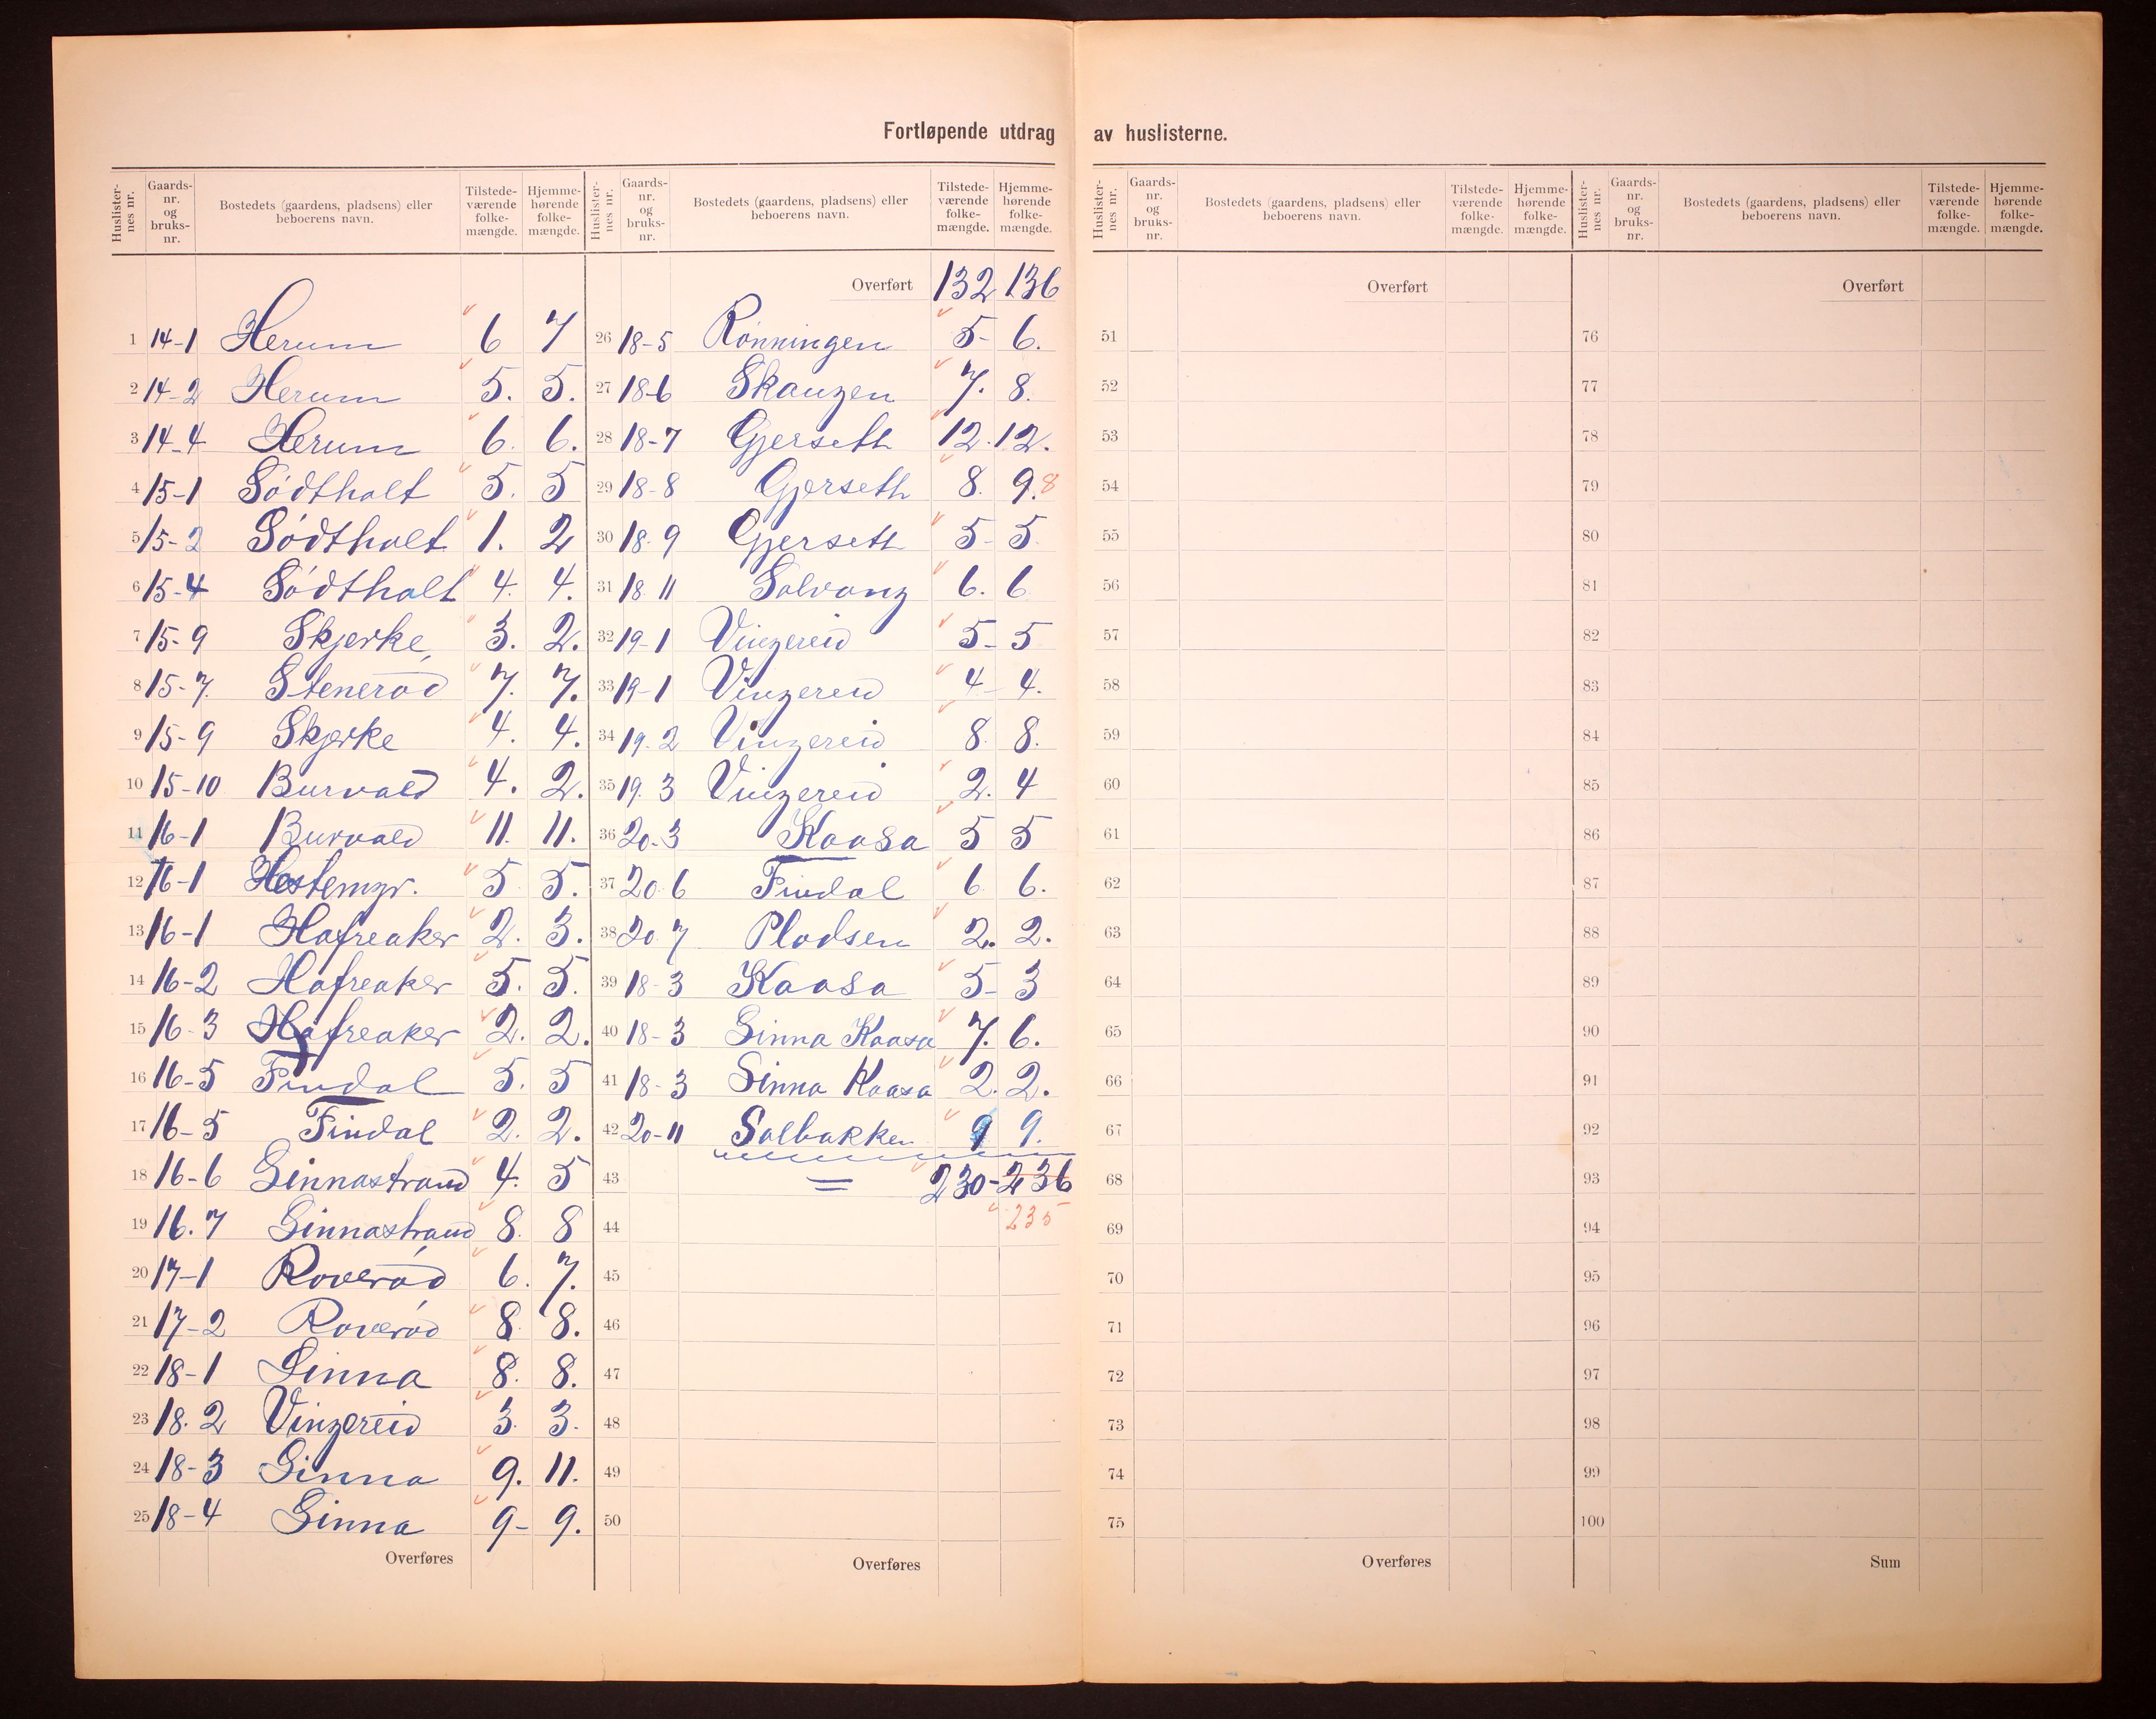 Fortløpende utdrag av huslisterne.
Huslister-nes nr. Gaards-nr. og bruks-nr. Bostedets (gaardens, pladsens) eller beboerens navn. Tilstede-værende folke-mængde. Hjemme-hørende folke-mængde.
1 14-1 Herum 6 7
2 14-2 Herum 5. 5.
3 14-4 Herum 6. 6.
4 15-1 Södtholt 5. 5
5 15-2 Södtholt 1. 2
6 15-4 Södtholt 4. 4.
7 15-9 Skjerke 3. 2.
8 15-7. Stenerød 7. 7.
9 15-9 Skjerke 4. 4.
10 15-10 Burvald 4. 2.
11 16-1 Burvald 11. 11.
12 16-1 Hestemyr. 5 5.
13 16-1 Hafreaker 2. 3.
14 16-2 Hafreaker 5. 5.
15 16-3 Hafreaker 2. 2.
16 16-5 Findal 5. 5
17 16-5 Findal 2. 2.
18 16-6 Ginnastrand 4. 5
19 16.7 Ginnastrand 8. 8
20 17-1 Roverød 6. 7.
21 17-2 Roverød 8. 8.
22 18-1 Ginna 8. 8.
23 18.2 Vingereid 3. 3.
24 18-3 Ginna 9. 11.
25 18-4 Ginna 9- 9.
Overføres
Huslister-nes nr. Gaards-nr. og bruks-nr. Bostedets (gaardens, pladsens) eller beboerens navn. Tilstede-værende folke-mængde. Hjemme-hørende folke-mængde.
Overført 132 136
26 18-5 Rönningen 5- 6.
27 18-6 Skaugen 7. 8.
28 18-7 Gjerseth 12. 12.
29 18-8 Gjerseth 8. 9. 8
30 18.9 Gjerseth 5- 5
31 18 11 Solvang 6. 6
32 19-1 Vingereid 5- 5
33 19-1 Vingereid 4- 4.
34 19.2 Vingereid 8. 8.
35 19.3 Vingereid 2. 4
36 20.3 Kaasa 5 5
37 20.6 Findal 6 6.
38 20 7 Pladsen 2. 2.
39 18-3 Kaasa 5- 3
40 18-3 Ginna Kaasa 7. 6.
41 18-3 Ginna Kaasa 2. 2.
42 20-11 Solbakken 9 9.
43 = 230- 236
44 235
45
46
47
48
49
50
Overføres
Huslister-nes nr. Gaards-nr. og bruks-nr. Bostedets (gaardens, pladsens) eller beboerens navn. Tilstede-værende folke-mængde. Hjemme-hørende folke-mængde.
Overført
51
52
53
54
55
56
57
58
59
60
61
62
63
64
65
66
67
68
69
70
71
72
73
74
75
Overføres
Huslister-nes nr. Gaards-nr. og bruks-nr. Bostedets (gaardens, pladsens) eller beboerens navn. Tilstede-værende folke-mængde. Hjemme-hørende folke-mængde.
Overført
76
77
78
79
80
81
82
83
84
85
86
87
88
89
90
91
92
93
94
95
96
97
98
99
100
Sum